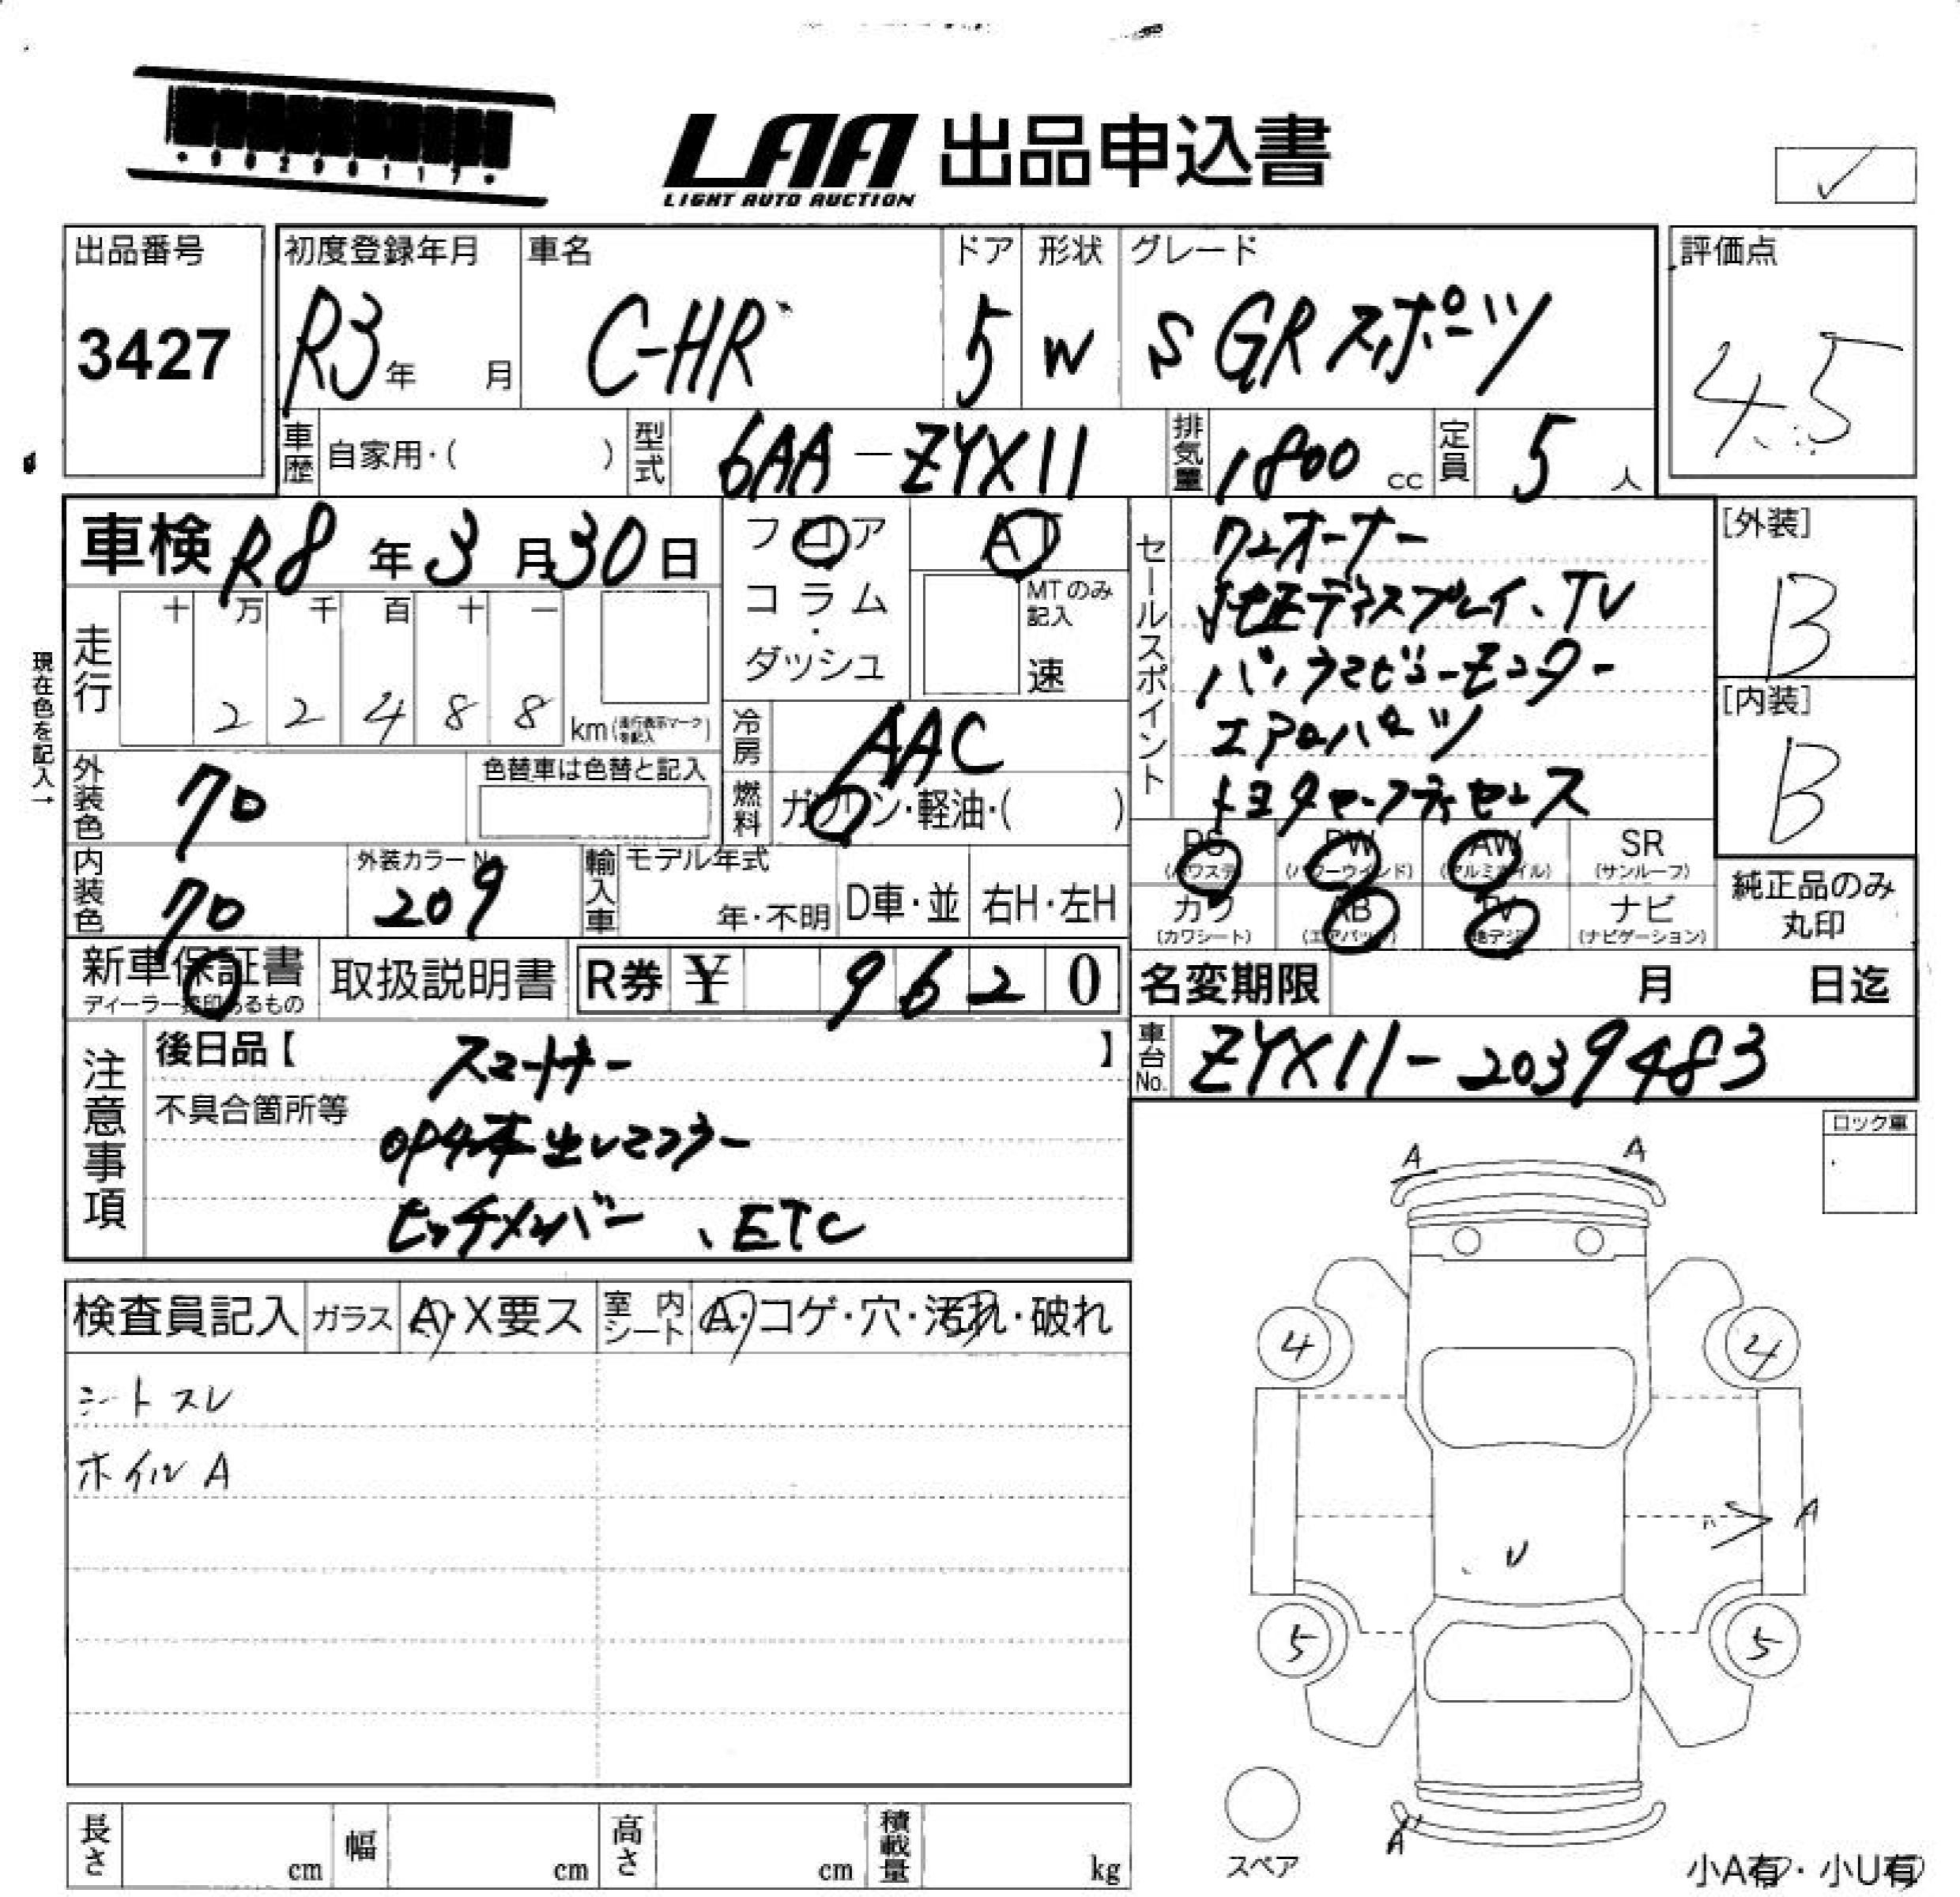 LAA 出品申込書
LIGHT AUTO AUCTION
出品番号
3427
初度登録年月
R3年 月
車名
C-HR
ドア
5
形状
W
グレード
S GRスポーツ
評価点
4.5
車歴 自家用・( )
型式 6AA-ZYX11
排気量 1800 cc
定員 5 人
車検 R8年3月30日
フロア
コラム・
ダッシュ
AT
MTのみ記入
速
セールスポイント
ワンオーナー
純正ディスプレイ、TV
パノラマビューモニター
エアロパーツ
トヨタセーフティセンス
[外装]
B
[内装]
B
現在色を記入→
走行
十 万 千 百 十 一
2 2 4 8 8
km(走行表示マークを記入)
冷房 AAC
燃料 ガソリン・軽油・( )
外装色 クロ
色替車は色替と記入
内装色 クロ
外装カラーNo.
209
輸入車
モデル年式
年・不明
D車・並
右H・左H
PS (パワステ)
PW (パワーウインド)
AW (アルミホイル)
SR (サンルーフ)
カワ (カワシート)
AB (エアバッグ)
TV (地デジ)
ナビ (ナビゲーション)
純正品のみ
丸印
新車保証書
ディーラー捺印あるもの
取扱説明書
R券 ¥ 9620
名変期限 月 日迄
車台No. ZYX11-2039483
注意事項
後日品【 】
スマートキー
不具合箇所等
OP4本出しマフラー
ヒッチメンバー、ETC
ロック車
検査員記入
ガラス A・X要ス
室内シート A・コゲ・穴・汚れ・破れ
シートスレ
ホイルA
A A
4 4
A
U
5 5
A
スペア
小A有・小U有
長さ cm
幅 cm
高さ cm
積載量 kg